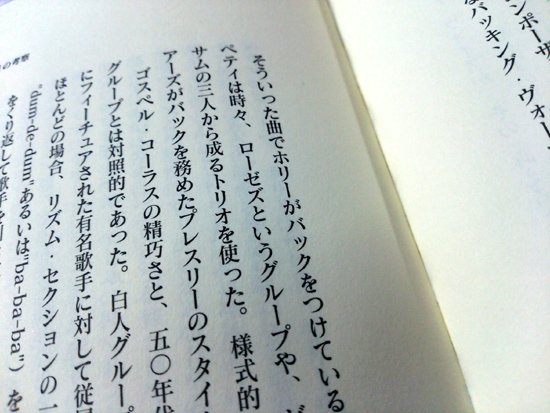 ンポーザ
なバッキング・ヴォー
の考察
そういった曲でホリーがバックをつけている
ペティは時々、ローゼズというグループや、ビ
サムの三人から成るトリオを使った。様式的
アーズがバックを務めたプレスリーのスタイ
ゴスペル・コーラスの精巧さと、五〇年代
グループとは対照的であった。白人グルー
にフィーチュアされた有名歌手に対して従属
ほとんどの場合、リズム・セクションの一
"dum-de-dum"あるいは"ba-ba-ba")を
をくり返して歌手を